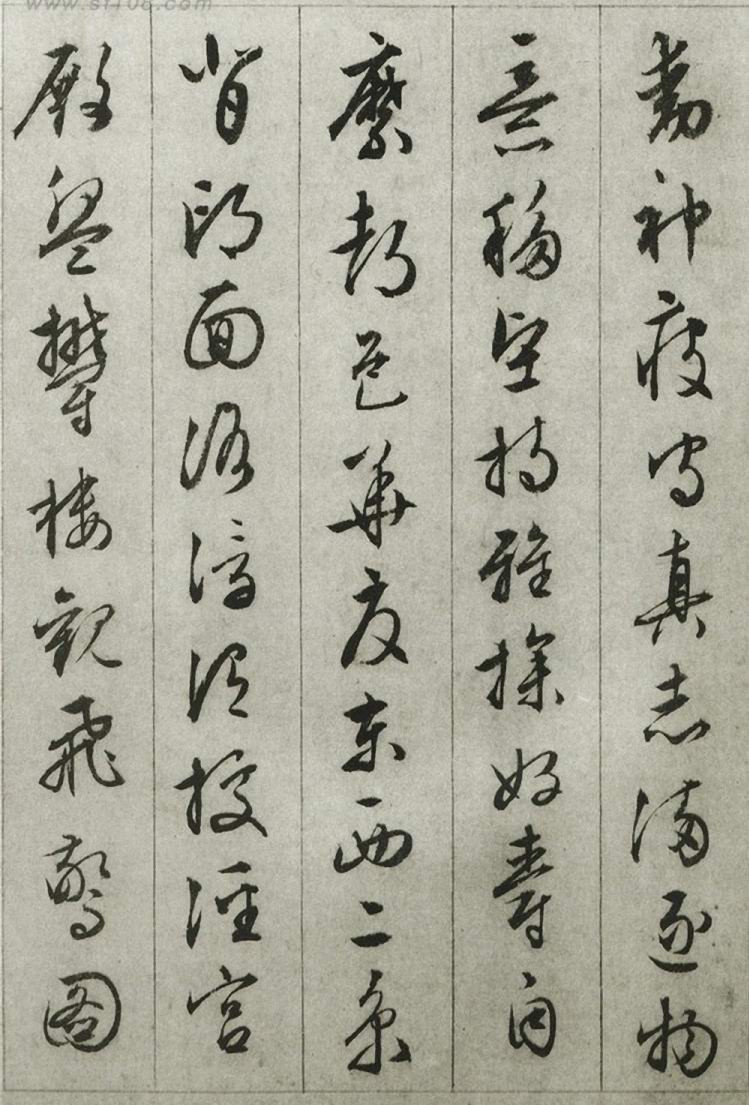 www.sf108.com
動神疲守真志滿逐物
意移堅持雅操好爵自
縻都邑華夏東西二京
背邙面洛浮渭據涇宮
殿盤鬱樓觀飛驚圖